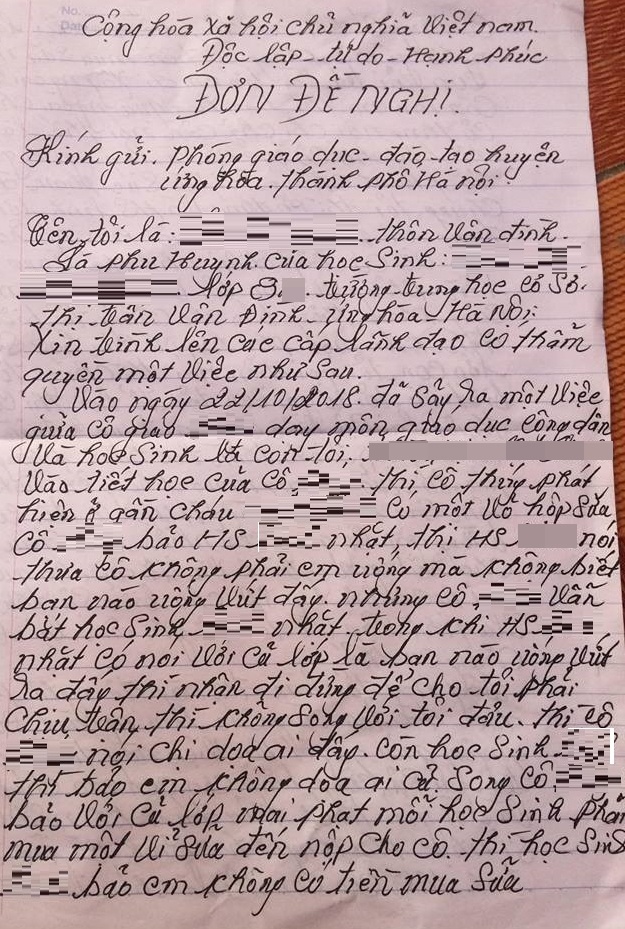 No.
Cộng hóa xã hội chủ nghĩa Việt nam.
Độc lập - tự do - Hạnh phúc
ĐƠN ĐỀ NGHỊ.
Kính gửi. Phòng giáo dục - đào tạo huyện
ứng hòa. thành phố Hà nội.
Tên tôi là: thôn Vân đình.
Là phụ Huynh của học Sinh:
lớp 8. trường trung học cơ Sở.
thị trấn Vân Đình - ứng hòa - Hà Nội:
Xin trình lên các cấp lãnh đạo có thẩm
quyền một Việc như Sau.
Vào ngày 22/10/2018. đã Sảy ra một Việc
giữa cô giáo dạy môn giáo dục công dân
Và học Sinh là con tôi,
Vào tiết học của Cô thì cô thúy phát
hiện ở gần cháu Có một Vỏ hộp Sữa
Cô bảo HS nhặt, thì HS nói
thưa cô không phải em uống mà không biết
bạn nào uống Vứt đấy. nhưng cô Vẫn
bắt học Sinh nhặt. trong khi HS
nhặt có nói Với cả lớp là bạn nào uống Vứt
ra đấy thì nhận đi đừng để cho tôi phải
Chịu trận, thì không Song Với tôi đâu. thì cô
nói chi dọa ai đấy. còn học Sinh
thì bảo em không dọa ai cả. Song cô
bảo Với cả lớp mai phạt mỗi học Sinh phải
mua một Vỉ Sữa đến nộp cho cô. thì học Sinh
bảo em không có tiền mua Sữa